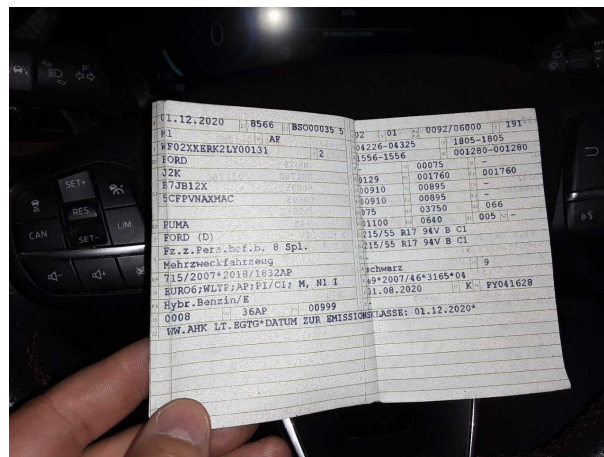 SET+
RES
CAN
LIM
SET-
01.12.2020 8566 BSO00035 5
M1 AF
WF02XXERK2LY00131 2
FORD
J2K
B7JB12X
5CFPVNAXMAC
PUMA
FORD (D)
Fz.z.Pers.bef.b. 8 Spl.
Mehrzweckfahrzeug
715/2007*2018/1832AP
EURO6;WLTP;AP;PI/CI; M, N1 I
Hybr.Benzin/E
0008 36AP 00999
WW.AHK LT.EGTG*DATUM ZUR EMISSIONSKLASSE: 01.12.2020*
02 01 0092/06000 191
04226-04325 1805-1805
1556-1556 001280-001280
- 00075 -
0129 001760 001760
00910 00895 -
00910 00895 -
075 03750 066
01100 0640 005 -
215/55 R17 94V B C1
215/55 R17 94V B C1
-
-
schwarz 9
e9*2007/46*3165*04
31.08.2020 K FY041628